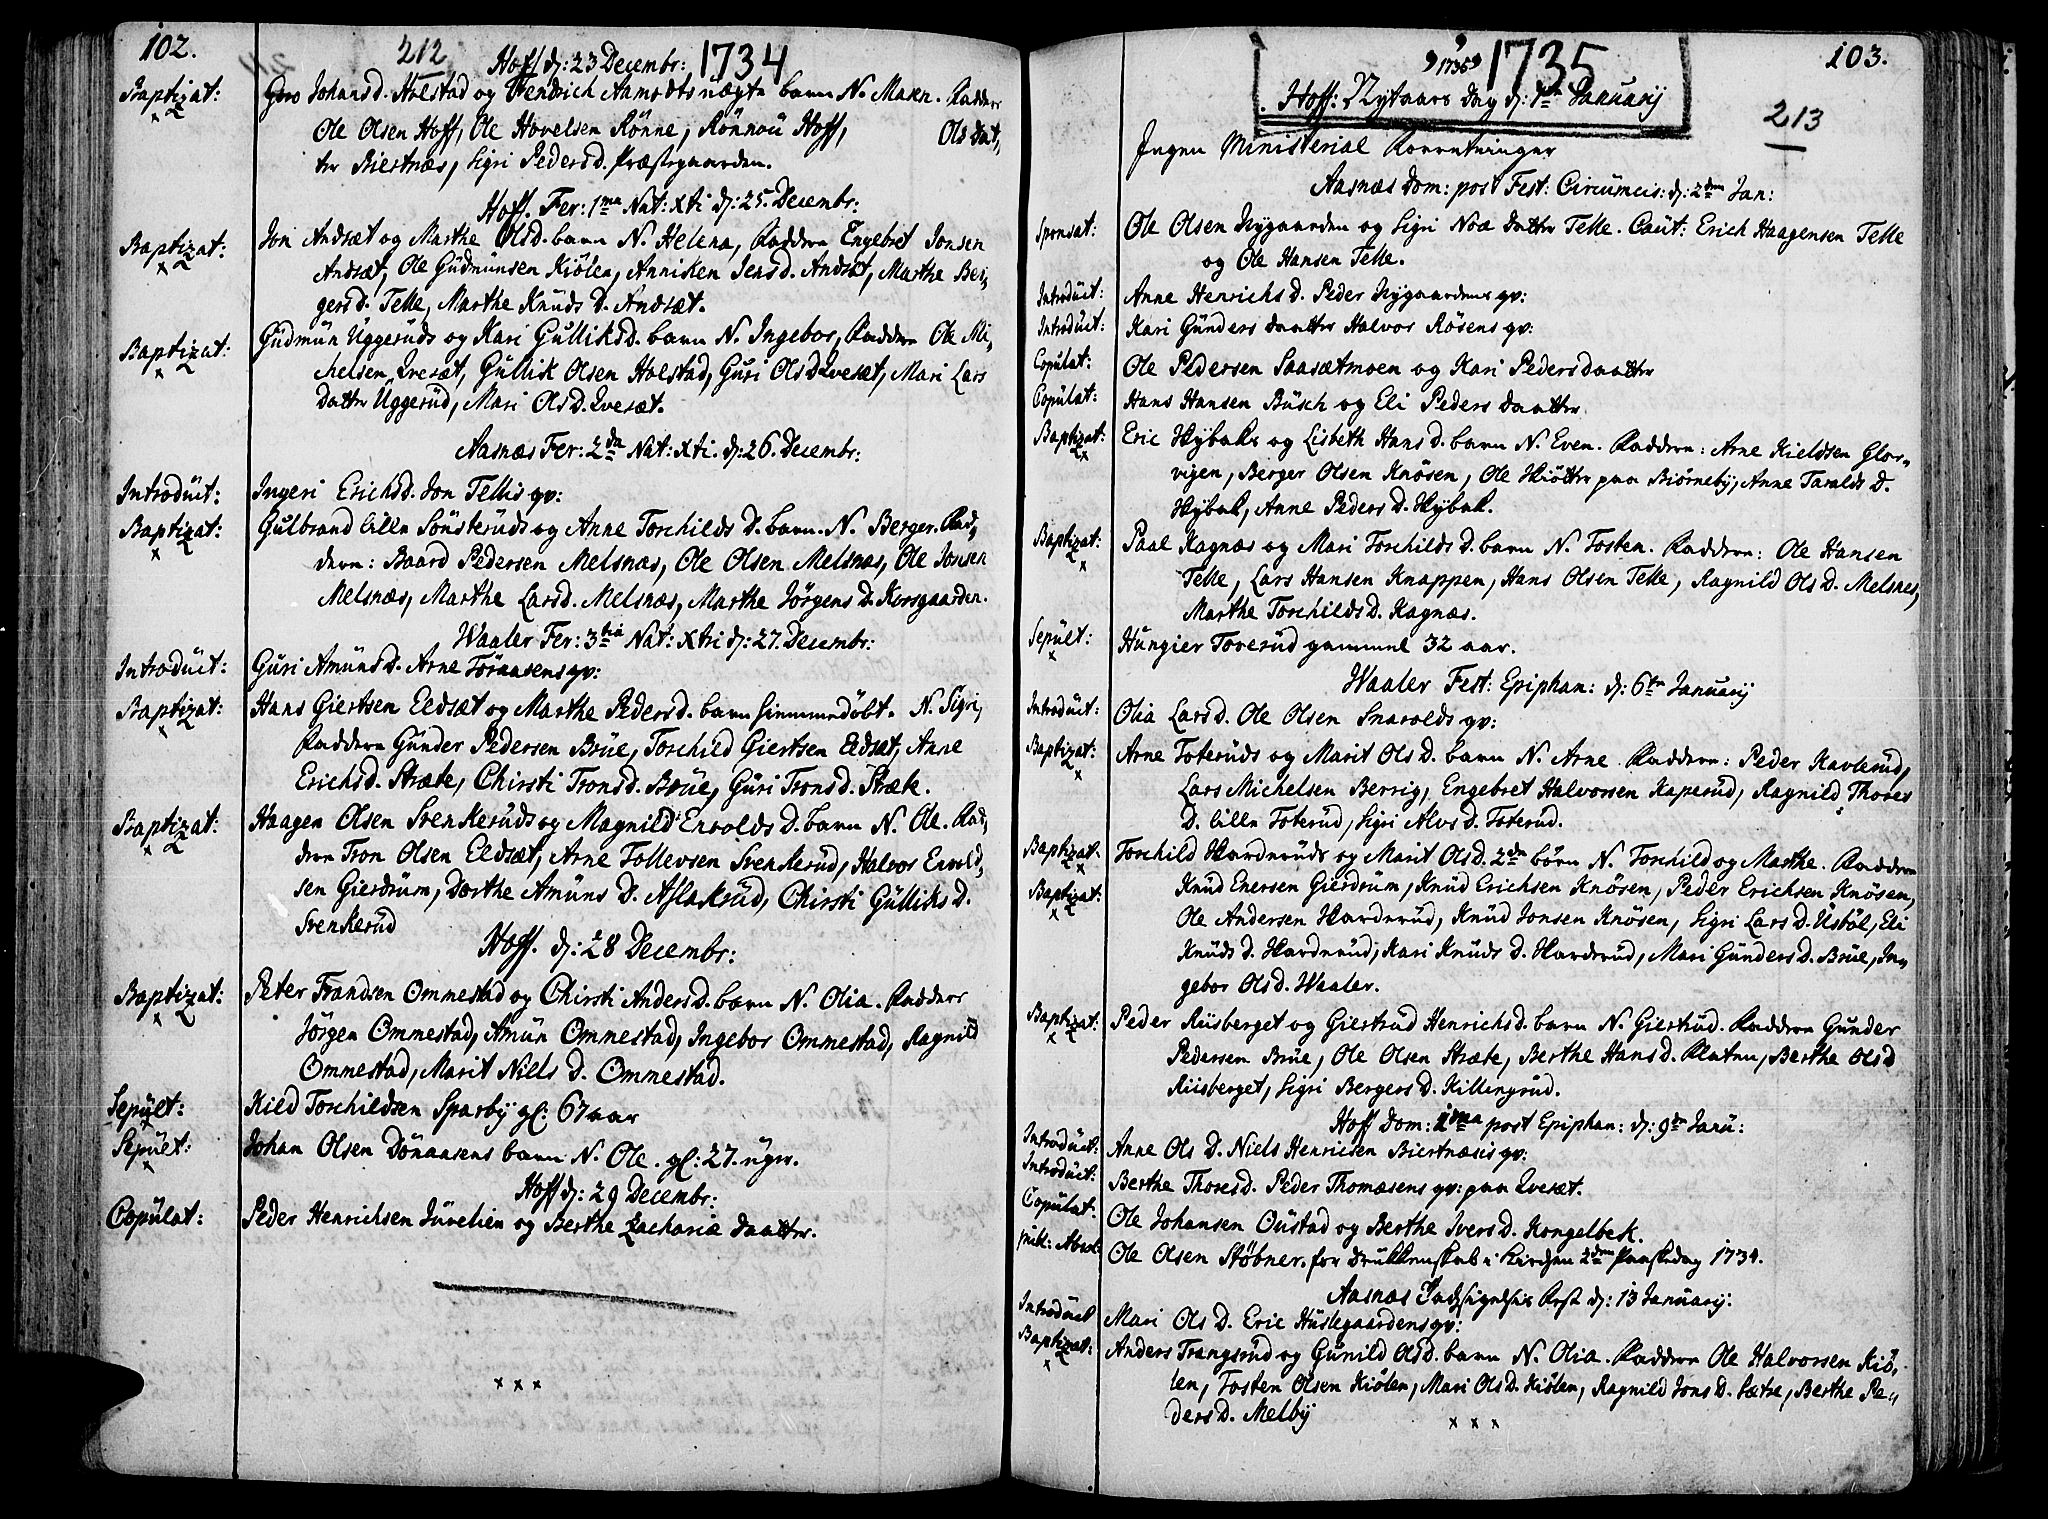 102.
212
Hoff d: 23 Decembr: 1734
Baptizat: Goro Johansd. Holstad og Hendrich Aamodts uægte barn N. Maren. Faddere
Ole Olsen Hoff, Ole Hovelsen Rönne, Rönnou Hoff, Ols Dat,
ter Biertnæs, Sigri Pedersd. Præstegaarden.
Hoff. Fer: 1ma Nat: Xti d: 25. Decembr:
Baptizat: Jon Andsæt og Marthe Olsd. barn N. Helena, Faddere Engebret Jonsen
Andsæt, Ole Gudmunsen Kiölen, Anniken Jensd. Andsæt, Marthe Ber,
gersd. Telle, Marthe Knuds D. Andsæt.
Baptizat: Gudmun Uggeruds og Kari Gulliksd. barn N. Ingebor, Faddere Ole Mi,
chelsen Qvesæt, Gullik Olsen Holstad, Guri Ols D. Qvesæt, Mari Lars
Datter Uggerud, Mari Ols D. Qvesæt.
Aasnæs Fer: 2da Nat: Xti. d: 26. Decembr:
Introduit: Ingeri Erichsd. Jon Tellis qv:
Baptizat: Gulbrand lille Sönsteruds og Anne Torchilds D. barn. N. Berger. Fad,
dere: Baard Pedersen Melsnæs, Ole Olsen Melsnæs, Ole Jonsen
Melsnæs, Marthe Larsd. Melsnæs, Marthe Jörgens D. Korsgaarden.
Waaler Fer: 3tia Nat: Xtri d: 27. Decembr:
Introduit: Guri Amunds D. Arne Töraasens qv:
Baptizat: Hans Giertsen Eldsæt og Marthe Pedersd. barn hiemmedöbt. N. Sigri,
Faddere Gunder Pedersen Brüe, Torchild Giertsen Eldsæt, Anne
Erichsd. Stræte, Chirsti Tronsd. Brüe, Guri Tronsd. Stræte.
Baptizat: Haagen Olsen Svenkeruds og Magnild Envolds D. barn N. Ole. Fad,
dere Tron Olsen Eldsæt, Arne Tollevsen Svenkerud, Halvor Envold,
sen Gierdrum, Dorthe Amuns D. Aflakrud, Chirsti Gulliks D.
Svenkerud
Hoff. d: 28 Decembr:
Baptizat: Peter Frandsen Ommestad og Chirsti Anders D. barn N. Olia. Faddere
Jörgen Ommestad, Amün Ommestad, Ingebor Ommestad, Ragnild
Ommestad, Marit Niels D. Ommestad.
Sepult: Kield Torchildsen Sparby gl: 67 aar
Sepult: Johan Olsen Dönaasens barn N. Ole. gl: 27. uger.
Hoff d: 29 Decembr:
Copulat: Peder Henrichsen Juvelien og Berthe Zachariæ Daatter.
x x x
103.
213
1735 1735
Hoff: Nytaars Dag d: 1ste Januarij
Ingen Ministerial Forretninger
Aasnæs Dom: post Fest: Circumcis: d: 2den Jan:
Sponsat: Ole Olsen Nygaarden og Sigri Noæ Datter Telle. Caut: Erich Haagensen Telle
og Ole Hansen Telle.
Introduit: Anne Henrichs D. Peder Nygaardens qv:
Introduit: Kari Gunders daatter Halvor Rösens qv:
Copulat: Ole Pedersen Saasætmoen og Kari Pedersdaatter
Copulat: Hans Hansen Büsch og Eli Peders daatter
Baptizat: Eric Nybaks og Lisbeth Hans D. barn N. Even. Faddere: Arne Kieldsen Glor,
vigen, Berger Olsen Knösen, Ole Skiötter paa Biörneby, Anne Taralds D.
Nybak, Anne Peders D. Nybak.
Baptizat: Paal Kagnæs og Mari Torchilds D. barn N. Tosten. Faddere: Ole Hansen
Telle, Lars Hansen Knappen, Hans Olsen Telle, Ragnild Ols D. Melsnes,
Marthe Torchilds D. Kagnæs.
Sepult: Hungier Toverud gammel 32 aar.
Waaler Fest: Epiphan: d: 6te Januarij
Introduit: Olia Lars d. Ole Olsen Snarolds qv:
Baptizat: Arne Toteruds og Marit Ols D. barn N. Arne. Faddere: Peder Kavlerud,
Lars Michelsen Berrig, Engebret Halvorsen Kaperud, Ragnild Thores
D. lille Toterud, Sigri Alvs D. Toterud.
Baptizat: Torchild Harderuds og Marit Ols D. 2de börn N. Torchild og Marthe. Faddere
Baptizat: Knud Enersen Gierdrum, Knud Erichsen Knösen, Peder Erichsen Knösen,
Ole Andersen Harderud, Knud Jonsen Knösen, Sigri Lars D. Usböl, Eli
Knuds D. Harderud, Kari Knuds D. Harderud, Mari Gunders D. Brüe, In,
gebor Ols D. Waaler.
Baptizat: Peder Riisberget og Giertrud Henrichs D. barn N. Giertrud. Faddere Gunder
Pedersen Brüe, Ole Olsen Stræte, Berthe Hans D. Flaten, Berthe Ols D
Riisberget, Sigri Bergers D. Killingrud.
Hoff Dom: 1ma post Epiphan: d: 9de Janu:
Introduit: Anne Ols D. Niels Henrichsen Biertnæsis qv:
Introduit: Berthe Thoresd. Peder Thomæsens qv: paa Qvesæt.
Copulat: Ole Johansen Oustad og Berthe Ivers D. Kongelbek.
publ: Absol: Ole Olsen Stöbner. for Drukkenskab i Kirchen 2den Paaskedag 1734.
Aasnæs Indsignelsis Fest d: 13 Januarij.
Introduit Mari Ols D. Eric Huslegaardens qv:
Baptizat: Anders Trangsrud og Gunild Olsd. barn N. Olia. Faddere Ole Halvorsen Kiö,
len, Tosten Olsen Kiölen, Mari Ols D. Kiölen, Ragnild Jons D. Sætre, Berthe Pe,
ders D. Melby
x x x